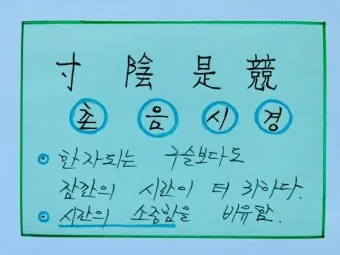 寸 陰 是 競
촌 음 시 경
한 자되는 구슬보다도
잠깐의 시간이 더 귀하다.
시간의 소중함을 비유함.